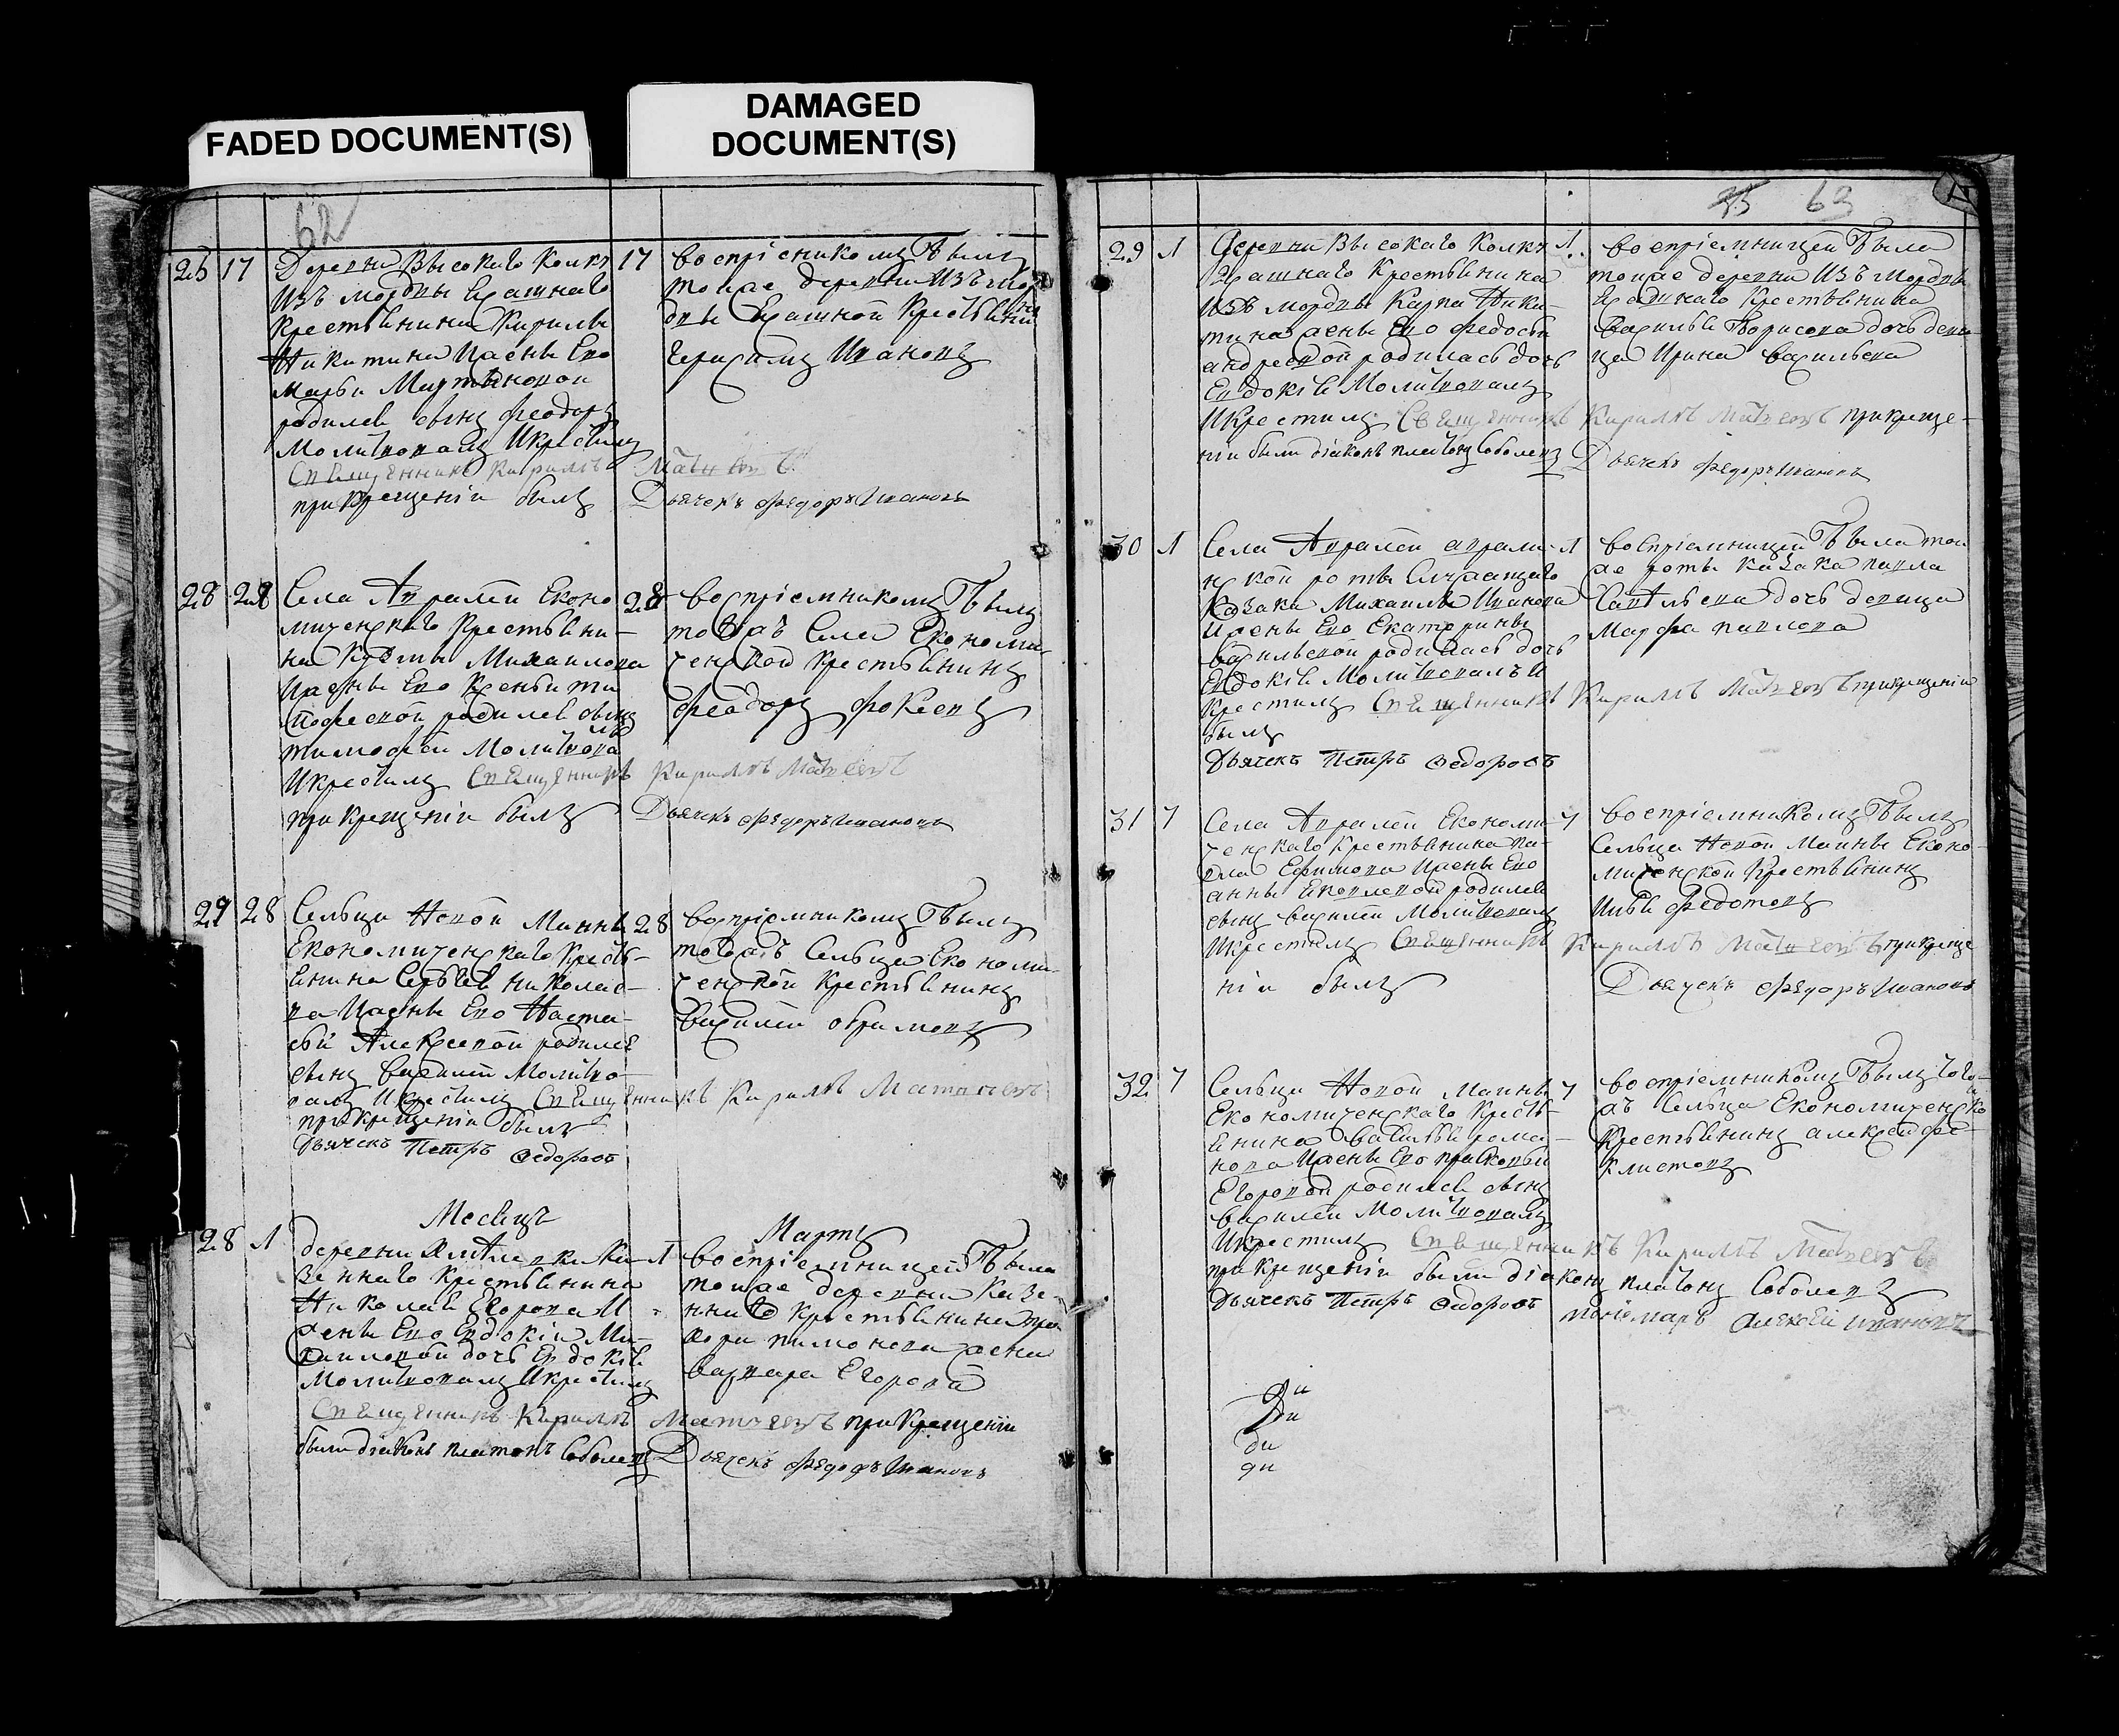 FADED DOCUMENT(S)
DAMAGED
DOCUMENT(S)
62
26 17 Деревни Высокаго Колка 17
изъ мордвы Ясашнаго
крестьянина Кирилы
Никитина и жены Ево
Марьи Мартыновой
родился сынъ Феодоръ
Молитвовалъ И крестилъ
Священникъ Кирилъ Матвеевъ
при крещеніи былъ Дьячекъ Федоръ Ивановъ
воспріемникомъ былъ
тоиже деревни Изъ мор
двы Ясашной Крестьянинъ
Герасимъ Ивановъ
28 28 Села Архалеи Економическаго Крестьяни-
на Кузмы Михаилова
И жены Ево Ксеньи
родился сынъ
тимофеи Молитвова
И крестилъ Священникъ Кирилъ Матвеевъ
при крещеніи былъ Дьячекъ Федоръ Ивановъ
28 воспріемникомъ былъ
тогожъ Села Економи-
ческой Крестьянинъ
Феодоръ Фокеевъ
29 28 Сельца Новой Маины 28
Економическаго Кресть-
янина Сергея Николае-
ва И жены Ево Наста-
сьи Алексеевой родился
сынъ Василеи Молитво-
валъ И крестилъ Священникъ Кирилъ Матвеевъ
при крещеніи былъ
Дьячекъ Петръ Федоровъ
воспріемникомъ былъ
тогожъ Сельца Економи-
ческой Крестьянинъ
Василеи
Месяцъ Мартъ
28 1 деревни Ка-
зеннаго Крестьянина
Николая Егорова И
жены Ево Евдокіи Ми-
хаиловой дочь Евдокія
Молитвовалъ И крестилъ
Священникъ Кирилъ Матвеевъ при крещеніи
были діаконъ платонъ Соболевъ Дьячекъ Федоръ Ивановъ
1 воспріемницей была
тоиже деревни Казе-
ннаго крестьянина
пимонова жена
варвара Егорова
35 63
29 1 Деревни Высокаго Колка 1
Ясашнаго Крестьянина
изъ мордвы Карпа Ники-
тина жены Ево Федосьи
андреевой родилась дочь
Евдокія Молитвовалъ
И крестилъ Священникъ Кирилъ Матвеевъ при креще-
ніи были діаконъ платонъ Соболевъ Дьячекъ Федоръ Ивановъ
воспріемницей была
тоиже деревни Изъ мордвы
Ясашнаго Крестьянина
Василья Борисова дочь деви-
ца Ирина Васильева
30 1 Села
роты
Козака Михаилы Иванова
И жены Ево Екатерины
Васильевой родилась дочь
Евдокія Молитвовалъ И
крестилъ Священникъ Кирилъ Матвеевъ при крещеніи
былъ
Дьячекъ Петръ Федоровъ
1 воспріемницей была тои
же роты казака павла
Савельева дочь девица
Марфа павлова
31 7 Села Економи- 7
ческаго Крестьянина па-
вла Ефимова И жены Ево
анны Яковлевой родился
сынъ Василеи Молитвовалъ
И крестилъ Священникъ Кирилъ Матвеевъ при креще
ніи былъ Дьячекъ Федоръ Ивановъ
воспріемникомъ былъ
Сельца Новой Маины Еконо-
мической Крестьянинъ
Илья Федотовъ
32 7 Сельца Новой Маины 7
Економическаго Кресть-
янина Василья рома-
нова И жены Ево прасковьи
Егоровой родился сынъ
Василеи Молитвовалъ
И крестилъ Священникъ Кирилъ Матвеевъ
при крещеніи были діаконъ платонъ Соболевъ
Дьячекъ Петръ Федоровъ пономарь Алексеи Ивановъ
воспріемникомъ былъ того-
жъ Сельца Економическо
Крестьянинъ